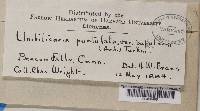 Distributed by the
Farlow Herbarium of Harvard University
Lichenes.
Umbilicaria pustulata, var. papulosa
(Ach.) Tuck.
Beacon Falls, Conn.
Coll. Chas. Wright.
Det. H. W. Evans
12 May 1884.